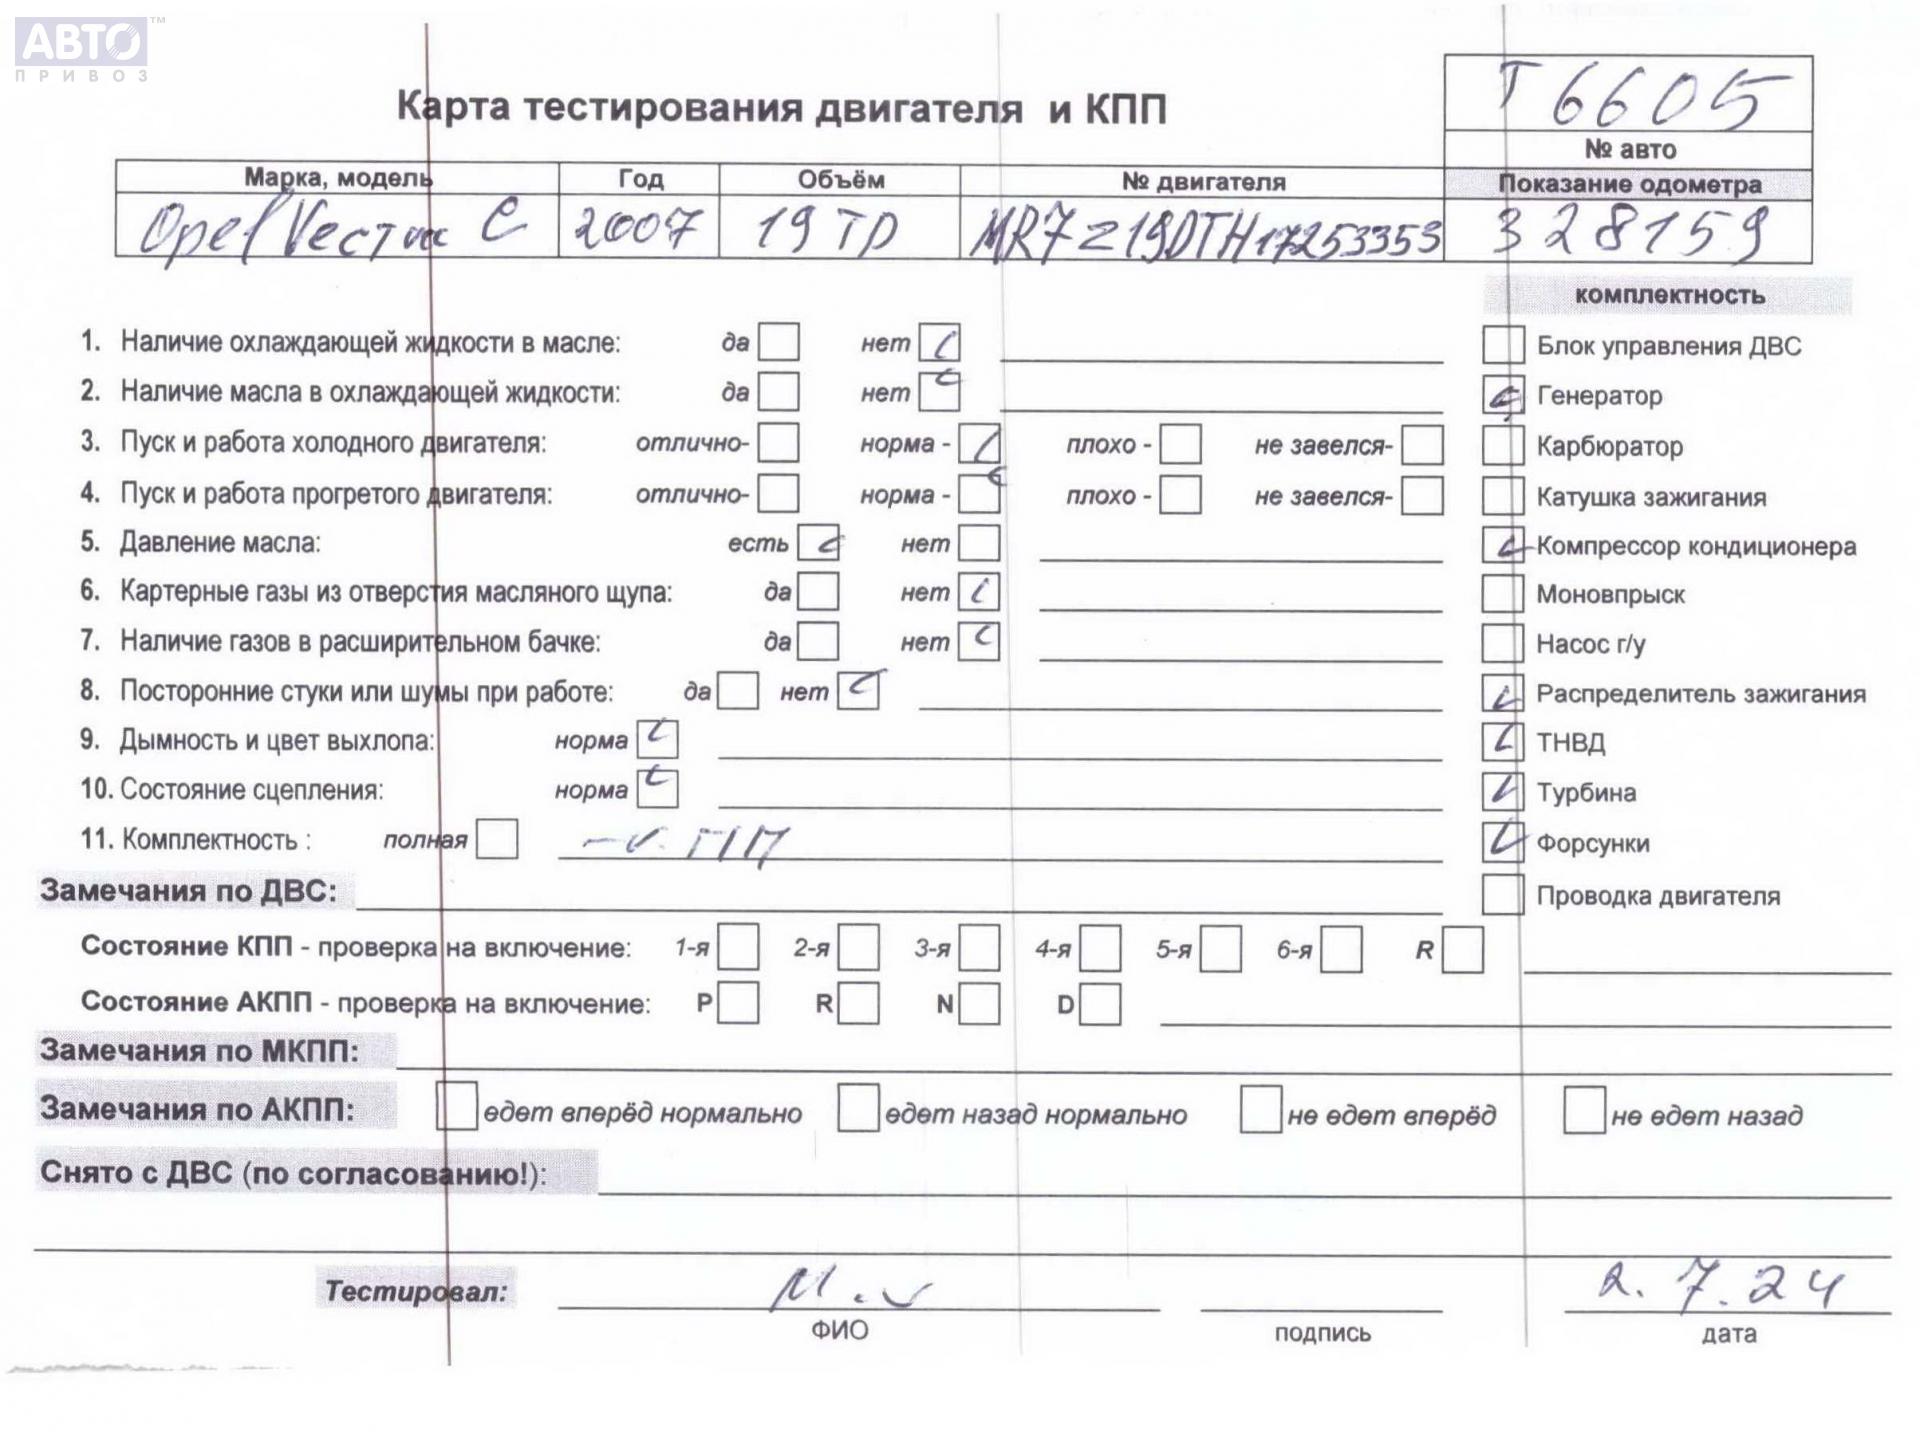 АВТО™
ПРИВОЗ
Т 6605
Карта тестирования двигателя и КПП
№ авто
Марка, модель Год Объём № двигателя Показание одометра
Opel Vectra C 2007 19 TD Z19DTH17253353 328159
комплектность
1. Наличие охлаждающей жидкости в масле: да нет Блок управления ДВС
2. Наличие масла в охлаждающей жидкости: да нет Генератор
3. Пуск и работа холодного двигателя: отлично- норма - плохо - не завелся- Карбюратор
4. Пуск и работа прогретого двигателя: отлично- норма - плохо - не завелся- Катушка зажигания
5. Давление масла: есть нет Компрессор кондиционера
6. Картерные газы из отверстия масляного щупа: да нет Моновпрыск
7. Наличие газов в расширительном бачке: да нет Насос г/у
8. Посторонние стуки или шумы при работе: да нет Распределитель зажигания
9. Дымность и цвет выхлопа: норма ТНВД
10. Состояние сцепления: норма Турбина
11. Комплектность : полная Форсунки
Замечания по ДВС: Проводка двигателя
Состояние КПП - проверка на включение: 1-я 2-я 3-я 4-я 5-я 6-я R
Состояние АКПП - проверка на включение: P R N D
Замечания по МКПП:
Замечания по АКПП: едет вперёд нормально едет назад нормально не едет вперёд не едет назад
Снято с ДВС (по согласованию!):
Тестировал: 2.7.24
ФИО подпись дата